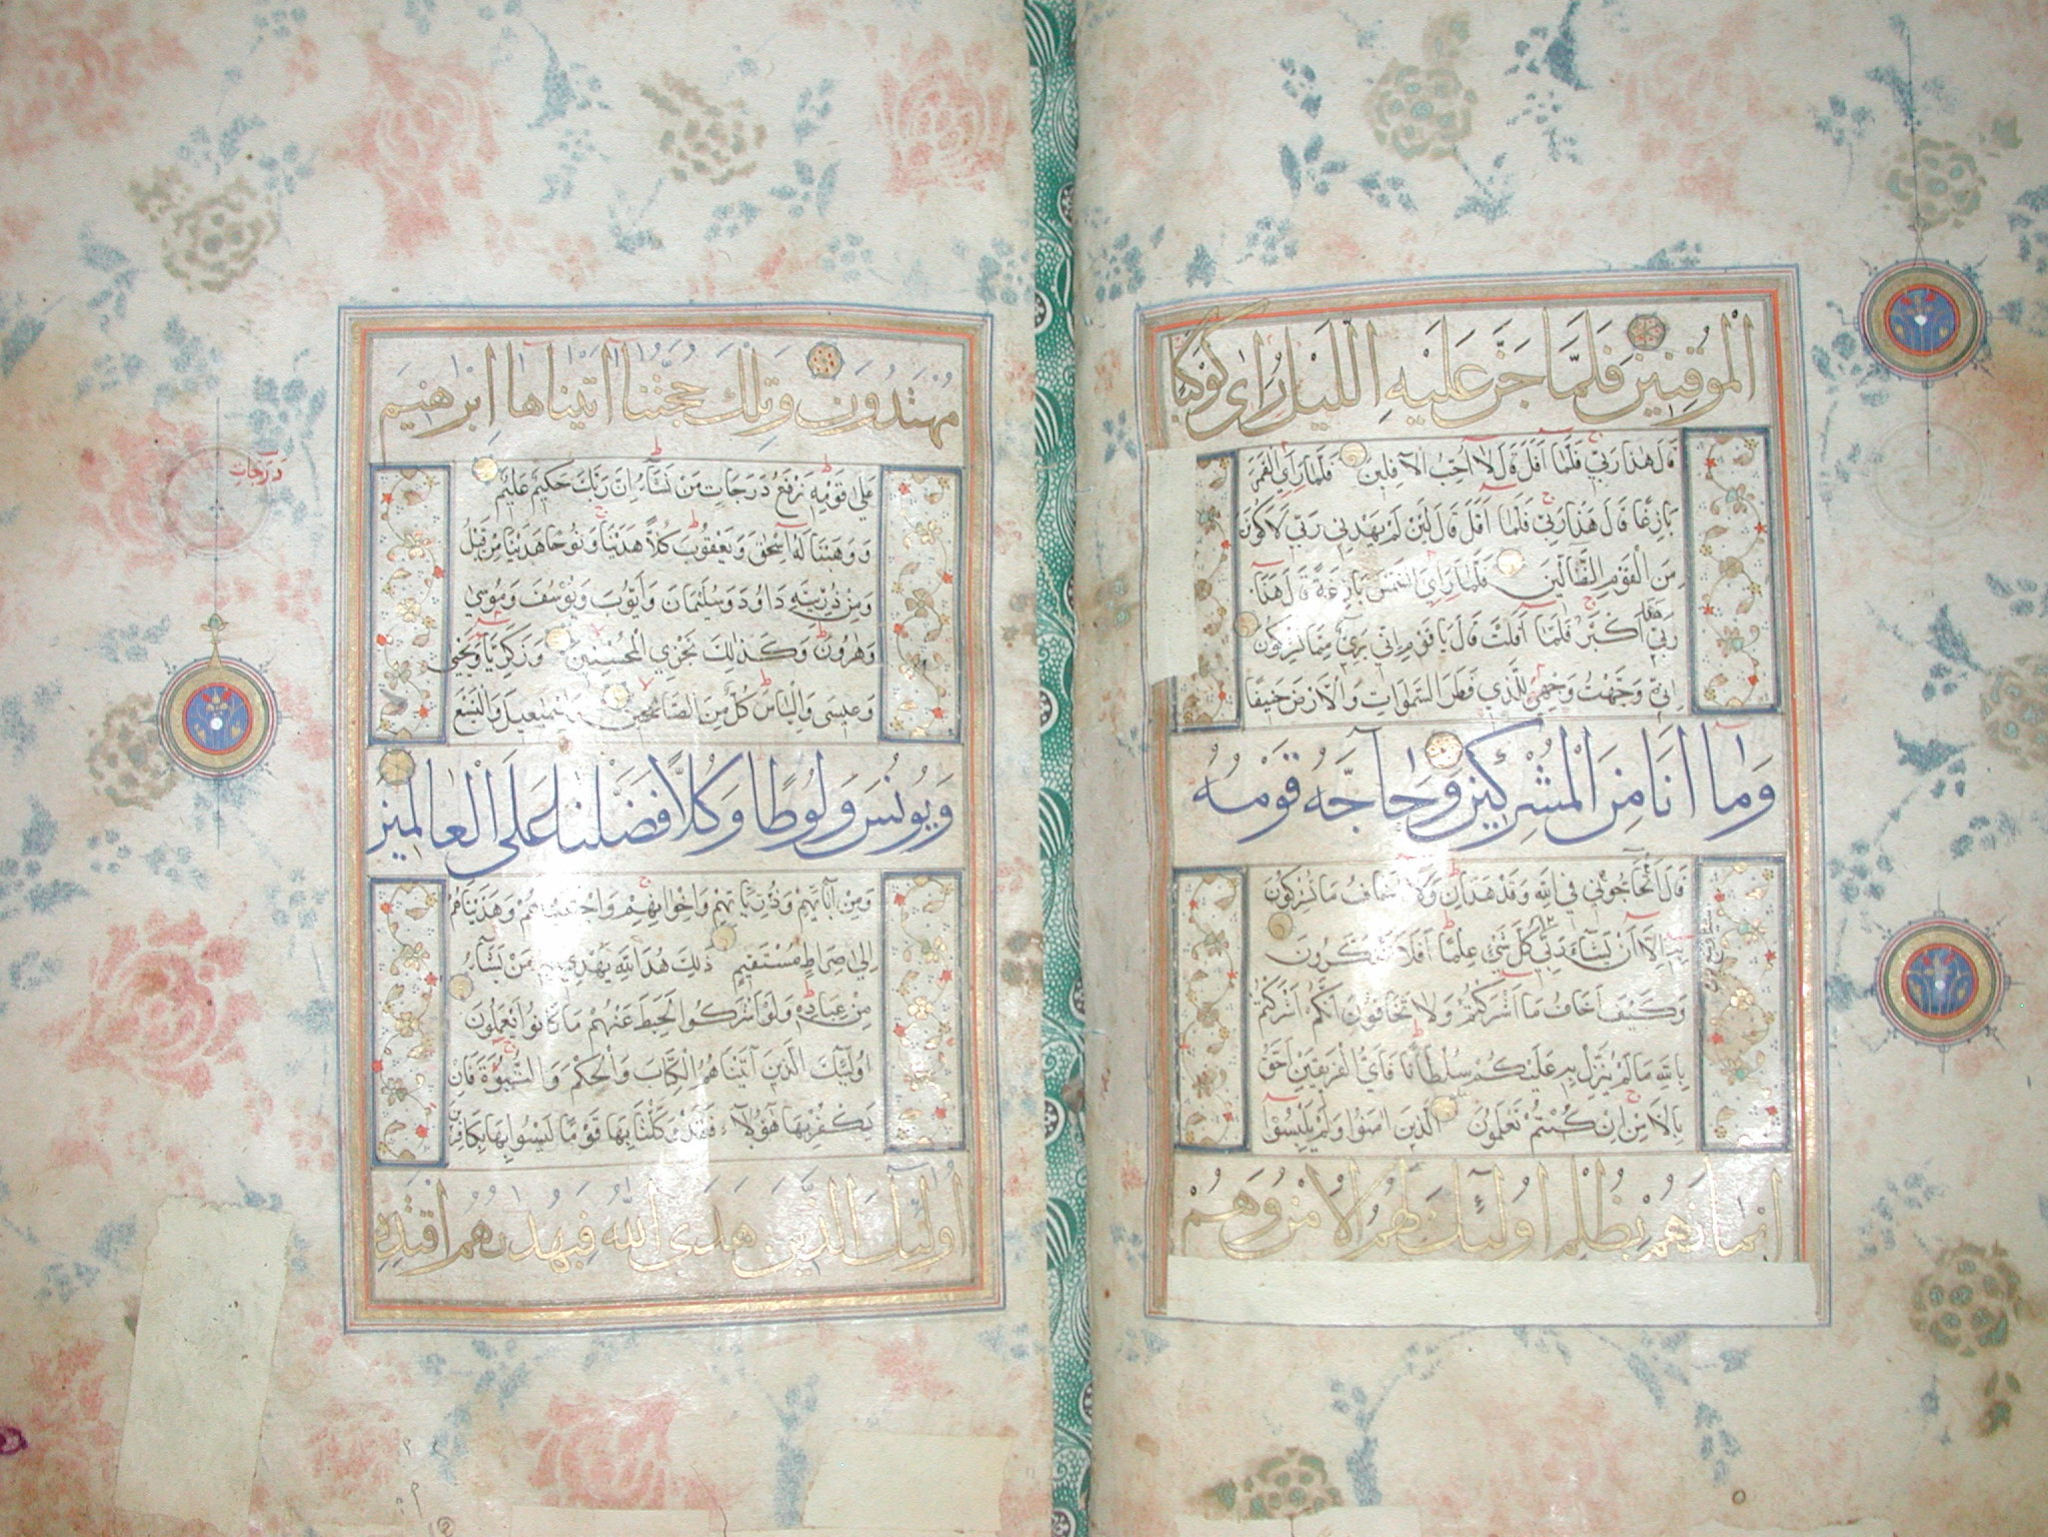 الْمُوقِنِينَ فَلَمَّا جَنَّ عَلَيْهِ اللَّيْلُ رَاٰى كَوْكَبًا
قَالَ هٰذَا رَبِّي فَلَمَّا أَفَلَ قَالَ لَا أُحِبُّ الْآفِلِينَ فَلَمَّا رَأَى الْقَمَرَ
بَازِغًا قَالَ هٰذَا رَبِّي فَلَمَّا أَفَلَ قَالَ لَئِنْ لَمْ يَهْدِنِي رَبِّي لَأَكُونَنَّ
مِنَ الْقَوْمِ الضَّالِّينَ فَلَمَّا رَأَى الشَّمْسَ بَازِغَةً قَالَ هٰذَا
رَبِّي هٰذَا أَكْبَرُ فَلَمَّا أَفَلَتْ قَالَ يَا قَوْمِ إِنِّي بَرِيءٌ مِمَّا تُشْرِكُونَ
إِنِّي وَجَّهْتُ وَجْهِيَ لِلَّذِي فَطَرَ السَّمٰوَاتِ وَالْأَرْضَ حَنِيفًا
وَمَا أَنَا مِنَ الْمُشْرِكِينَ وَحَاجَّهُ قَوْمُهُ
قَالَ أَتُحَاجُّونِّي فِي اللّٰهِ وَقَدْ هَدَانِ وَلَا أَخَافُ مَا تُشْرِكُونَ
بِهِ إِلَّا أَنْ يَشَاءَ رَبِّي كُلَّ شَيْءٍ عِلْمًا أَفَلَا تَتَذَكَّرُونَ
وَكَيْفَ أَخَافُ مَا أَشْرَكْتُمْ وَلَا تَخَافُونَ أَنَّكُمْ أَشْرَكْتُمْ
بِاللّٰهِ مَا لَمْ يُنَزِّلْ بِهِ عَلَيْكُمْ سُلْطَانًا فَأَيُّ الْفَرِيقَيْنِ أَحَقُّ
بِالْأَمْنِ إِنْ كُنْتُمْ تَعْلَمُونَ الَّذِينَ آمَنُوا وَلَمْ يَلْبِسُوا
إِيمَانَهُمْ بِظُلْمٍ أُولٰئِكَ لَهُمُ الْأَمْنُ وَهُمْ
مُهْتَدُونَ وَتِلْكَ حُجَّتُنَا آتَيْنَاهَا إِبْرٰهِيمَ
عَلٰى قَوْمِهِ نَرْفَعُ دَرَجَاتٍ مَنْ نَشَاءُ إِنَّ رَبَّكَ حَكِيمٌ عَلِيمٌ
درجات
وَوَهَبْنَا لَهُ إِسْحٰقَ وَيَعْقُوبَ كُلًّا هَدَيْنَا وَنُوحًا هَدَيْنَا مِنْ قَبْلُ
وَمِنْ ذُرِّيَّتِهِ دَاوُدَ وَسُلَيْمَانَ وَأَيُّوبَ وَيُوسُفَ وَمُوسٰى
وَهٰرُونَ وَكَذٰلِكَ نَجْزِي الْمُحْسِنِينَ وَزَكَرِيَّا وَيَحْيٰى
وَعِيسٰى وَإِلْيَاسَ كُلٌّ مِنَ الصَّالِحِينَ وَإِسْمٰعِيلَ وَالْيَسَعَ
وَيُونُسَ وَلُوطًا وَكُلًّا فَضَّلْنَا عَلَى الْعَالَمِينَ
وَمِنْ آبَائِهِمْ وَذُرِّيَّاتِهِمْ وَإِخْوَانِهِمْ وَاجْتَبَيْنَاهُمْ وَهَدَيْنَاهُمْ
إِلٰى صِرَاطٍ مُسْتَقِيمٍ ذٰلِكَ هُدَى اللّٰهِ يَهْدِي بِهِ مَنْ يَشَاءُ
مِنْ عِبَادِهِ وَلَوْ أَشْرَكُوا لَحَبِطَ عَنْهُمْ مَا كَانُوا يَعْمَلُونَ
أُولٰئِكَ الَّذِينَ آتَيْنَاهُمُ الْكِتَابَ وَالْحُكْمَ وَالنُّبُوَّةَ فَإِنْ
يَكْفُرْ بِهَا هٰؤُلَاءِ فَقَدْ وَكَّلْنَا بِهَا قَوْمًا لَيْسُوا بِهَا بِكَافِرِينَ
أُولٰئِكَ الَّذِينَ هَدَى اللّٰهُ فَبِهُدٰىهُمُ اقْتَدِهْ